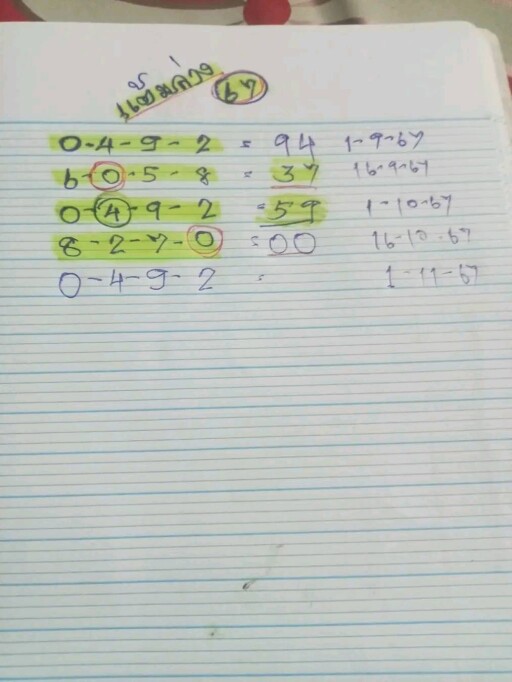 แต้มล่าง 67
0-4-9-2 = 94 1-9-67
6-0-5-8 = 37 16-9-67
0-4-9-2 = 59 1-10-67
8-2-7-0 = 00 16-10-67
0-4-9-2 = 1-11-67